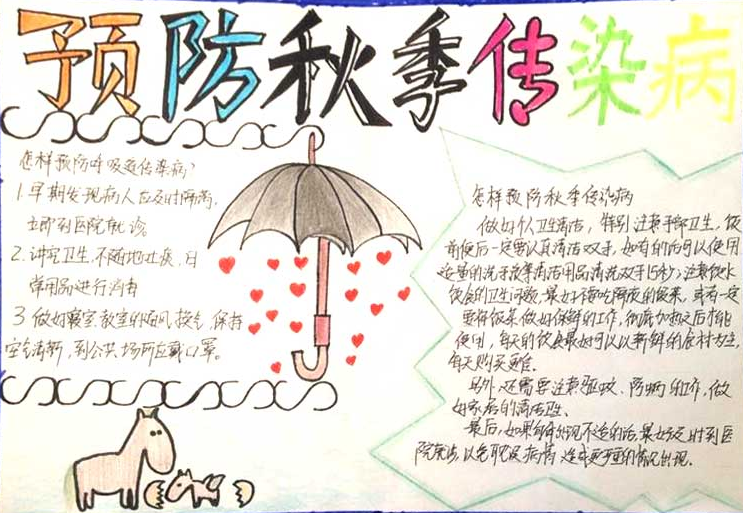 预防秋季传染病
怎样预防呼吸道传染病?
1.早期发现病人应及时隔离,
立即到医院就诊。
2.讲究卫生,不随地吐痰,日
常用品进行消毒
3 做好寝室、教室的通风换气,保持
空气清新,到公共场所应戴口罩。
怎样预防秋季传染病
做好个人卫生清洁,特别注意手部卫生,饭
前便后一定要认真清洁双手,如有的话可以使用
适量的洗手液等清洁用品清洗双手15秒;注意饮水
饮食的卫生问题,最好别吃隔夜的饭菜,或者一定
要将饭菜做好保鲜的工作,彻底加热之后才能
使用,每天的饮食最好可以以新鲜的食材为主,
每天购买更佳。
另外还需要注意驱蚊、防病的工作,做
好家居的清洁卫生、
最后,如果身体出现不适的话,最好及时到医
院就诊,以免耽误病情,造成更重的情况出现。